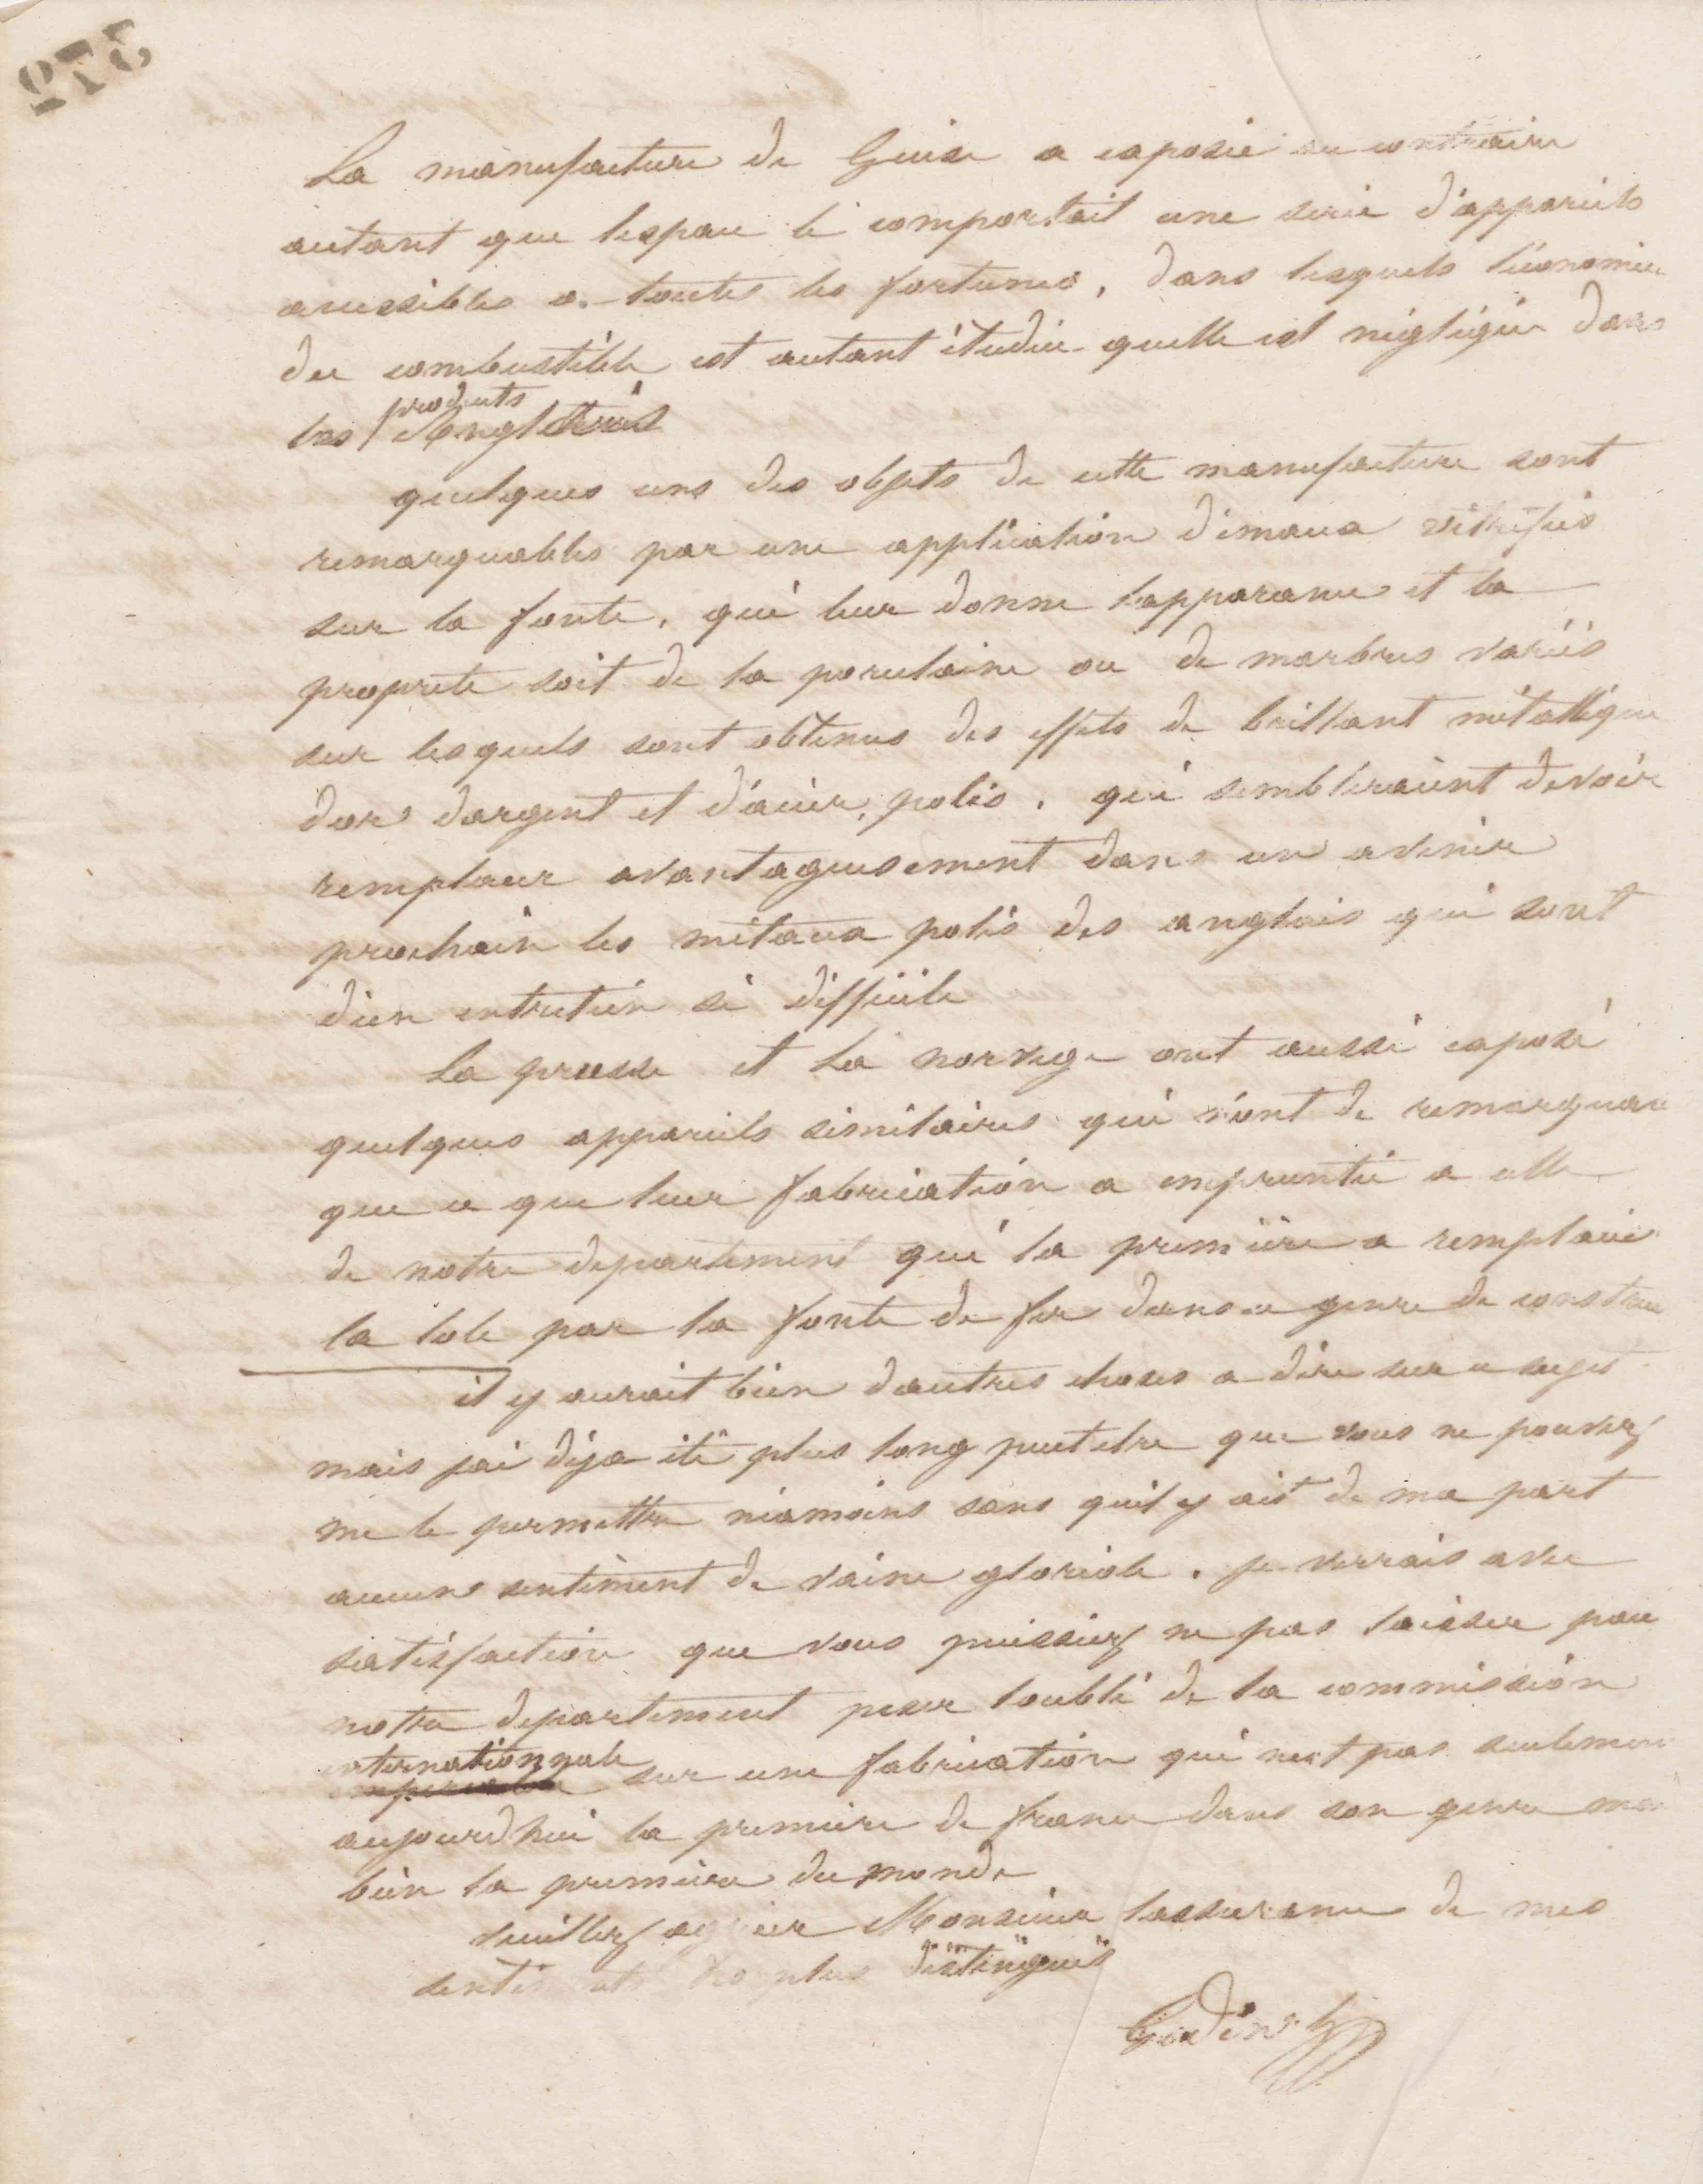 La manufacture de Guise a exposée au contraire
autant que lespace le comportait une serie d'appareils
accessibles a toutes les fortunes, dans lesquels l'économie
du combustible est autant étudiée quelle est négligée dans
les produits Anglais
quelques uns des objets de cette manufacture sont
remarquables par une application d'émaux vitrifiés
sur la fonte, qui leur donne l'apparance et la
propreté soit de la porcelaine ou de marbres variés
sur lesquels sont obtenus des effets de brillant métallique
dor dargent et d'acier, polis, qui sembleraient devoir
remplacer avantageusement dans un avenir
prochain les métaux polis des anglais qui sont
dun entretien si difficile
La prusse et La norvege ont aussi exposé
quelques appareils similaires qui n'ont de remarquable
que ce que leur fabrication a emprunté a celle
de notre departement qui la première a remplacé
la tole par la fonte de fer dans ce genre de
il y aurait bien dautres choses a dire sur ce sujet
mais jai déja été plus long peut etre que vous ne pouvez
me le permettre néamoins sans quil y ait de ma part
aucun sentiment de vaine gloriole. je verrais avec
satisfaction que vous puissiez ne pas laisser
notre departement pour loubli de la commission
internationnale sur une fabrication qui nest pas seulement
aujourdhui la premiere de france dans son genre mais
bien la premiere du monde
Veuillez agréer Monsieur lassurance de mes
sentiments les plus distingués
Godin